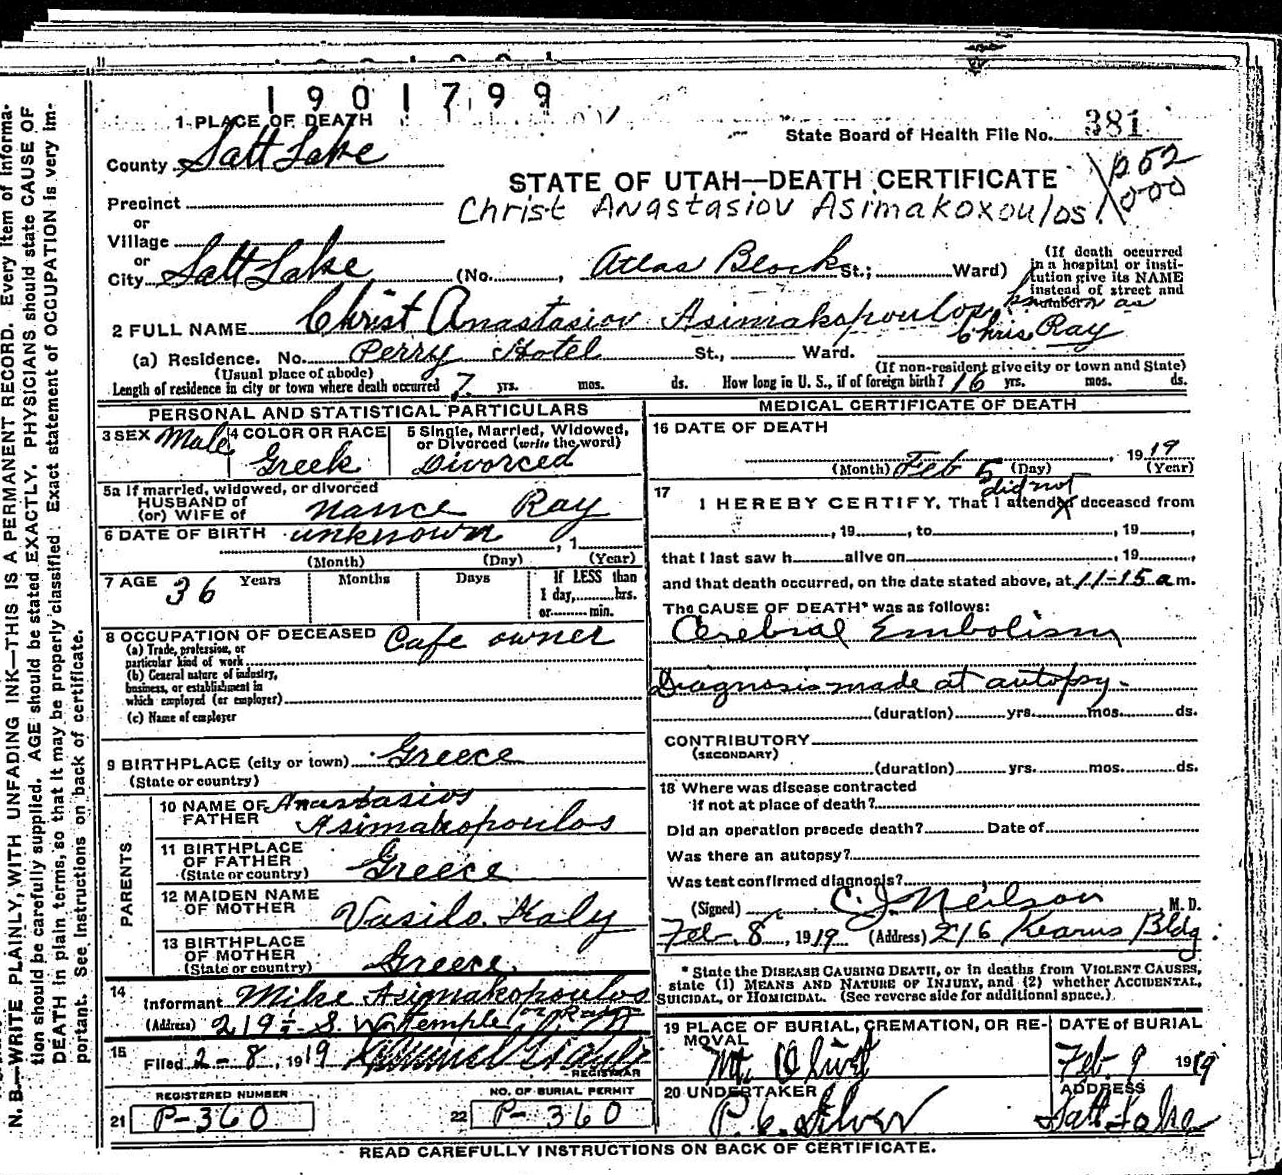 1901799
1 PLACE OF DEATH
State Board of Health File No. 381
County Salt Lake
STATE OF UTAH—DEATH CERTIFICATE
052
000
Precinct
Christ Anastasiov Asimakoxoulos
or
Village
or
City Salt Lake (No. , Atlas Block St.; Ward)
(If death occurred
in a hospital or insti-
tution give its NAME
instead of street and
number)
known as
2 FULL NAME Christ Anastasiov Asimakopoulos
Chris Ray
(a) Residence. No. Perry Hotel St., Ward.
(Usual place of abode)
(If non-resident give city or town and State)
Length of residence in city or town where death occurred 7 yrs. mos. ds. How long in U. S., if of foreign birth? 16 yrs. mos. ds.
PERSONAL AND STATISTICAL PARTICULARS
3 SEX Male
4 COLOR OR RACE
Greek
5 Single, Married, Widowed,
or Divorced (write the word)
Divorced
5a If married, widowed, or divorced
HUSBAND of
(or) WIFE of Nance Ray
6 DATE OF BIRTH unknown , 1
(Month) (Day) (Year)
7 AGE 36 Years Months Days
If LESS than
1 day, hrs.
or min.
8 OCCUPATION OF DECEASED Cafe owner
(a) Trade, profession, or
particular kind of work
(b) General nature of industry,
business, or establishment in
which employed (or employer)
(c) Name of employer
9 BIRTHPLACE (city or town) Greece
(State or country)
PARENTS
10 NAME OF FATHER Anastasios
Asimakopoulos
11 BIRTHPLACE
OF FATHER
(State or country) Greece
12 MAIDEN NAME
OF MOTHER Vasilo Kaly
13 BIRTHPLACE
OF MOTHER
(State or country) Greece
14 Informant Mike Asimakopoulos
(Address) 219½ S. W. Temple or Ray
15 Filed 2-8, 1919
REGISTRAR
REGISTERED NUMBER
21 P-360
NO. OF BURIAL PERMIT
22 P-360
MEDICAL CERTIFICATE OF DEATH
16 DATE OF DEATH
Feb 5, 1919
(Month) (Day) (Year)
17 did not
I HEREBY CERTIFY, That I attended deceased from
, 19 , to , 19 ,
that I last saw h alive on , 19 ,
and that death occurred, on the date stated above, at 11-15 a m.
The CAUSE OF DEATH* was as follows:
Cerebral Embolism
Diagnosis made at autopsy.
(duration) yrs. mos. ds.
CONTRIBUTORY
(SECONDARY)
(duration) yrs. mos. ds.
18 Where was disease contracted
If not at place of death?
Did an operation precede death? Date of
Was there an autopsy?
Was test confirmed diagnosis?
(Signed) C. J. Neilson M. D.
Feb. 8, 1919 (Address) 216 Kearns Bldg.
* State the DISEASE CAUSING DEATH, or in deaths from VIOLENT CAUSES,
state (1) MEANS AND NATURE OF INJURY, and (2) whether ACCIDENTAL,
SUICIDAL, or HOMICIDAL. (See reverse side for additional space.)
19 PLACE OF BURIAL, CREMATION, OR RE-
MOVAL
Mt. Olivet
DATE OF BURIAL
Feb. 9 1919
20 UNDERTAKER
P. C. Silver
ADDRESS
Salt Lake
READ CAREFULLY INSTRUCTIONS ON BACK OF CERTIFICATE.
N. B.—WRITE PLAINLY, WITH UNFADING INK—THIS IS A PERMANENT RECORD. Every item of informa-
tion should be carefully supplied. AGE should be stated EXACTLY. PHYSICIANS should state CAUSE OF
DEATH in plain terms, so that it may be properly classified. Exact statement of OCCUPATION is very im-
portant. See instructions on back of certificate.